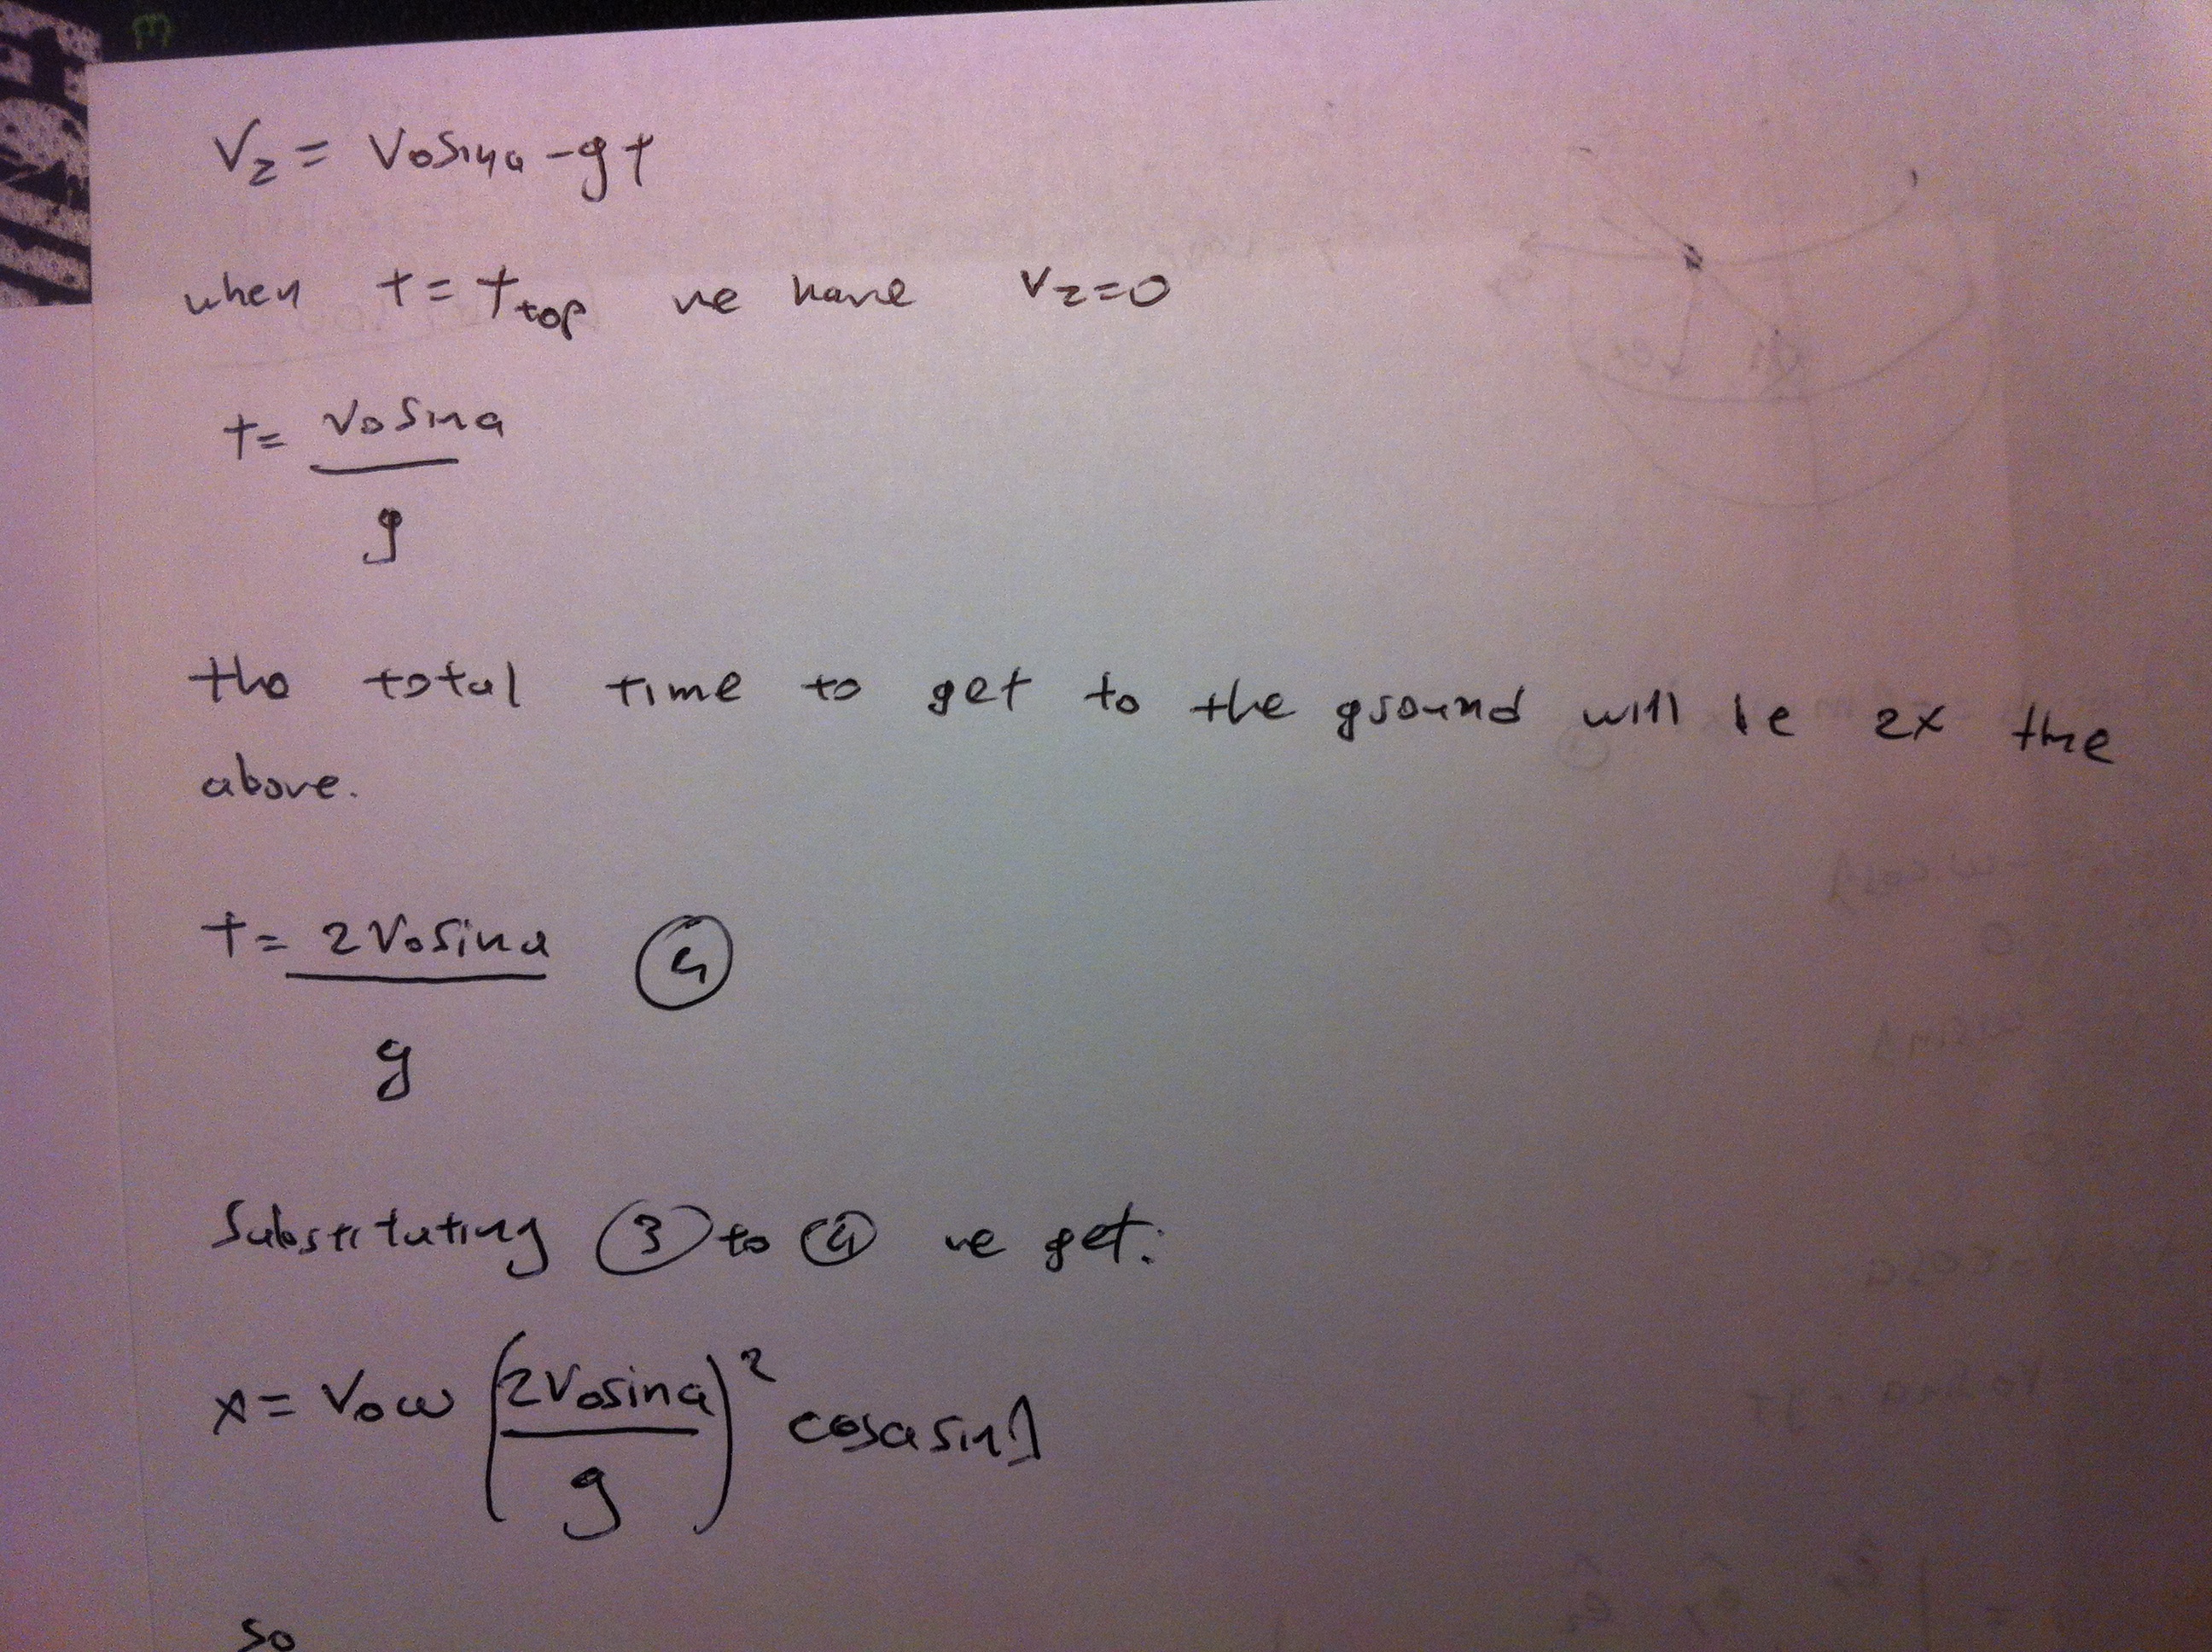 Vz = V0sina - gt
when t = ttop we have Vz=0
t = V0sina
g
the total time to get to the ground will be 2x the
above.
t = 2V0sina ④
g
Substituting ③ to ④ we get:
x = V0ω (2V0sina)² cosasinλ
g
So